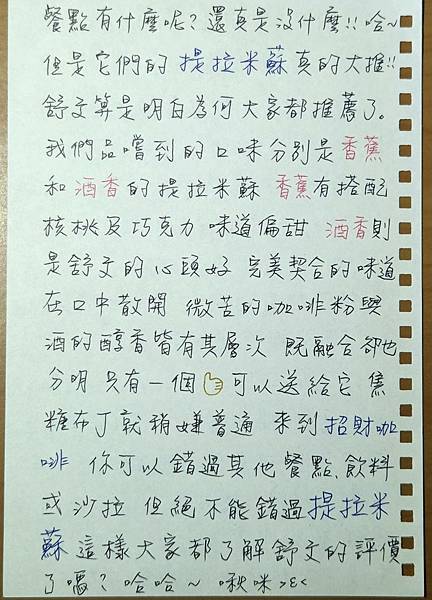 餐點有什麼呢？還真是沒什麼!! 哈~
但是它們的 提拉米蘇 真的大推!!
舒文算是明白為何大家都推薦了。
我們品嚐到的口味分別是香蕉
和酒香的提拉米蘇 香蕉有搭配
核桃及巧克力 味道偏甜 酒香則
是舒文的心頭好 完美契合的味道
在口中散開 微苦的咖啡粉與
酒的醇香皆有其層次 既融合卻也
分明 只有一個👍可以送給它 焦
糖布丁就稍嫌普通 來到招財咖
啡 你可以錯過其他餐點、飲料
或沙拉 但絕不能錯過提拉米
蘇 這樣大家都了解舒文的評價
了嗎？哈哈~ 啾咪 >ε<